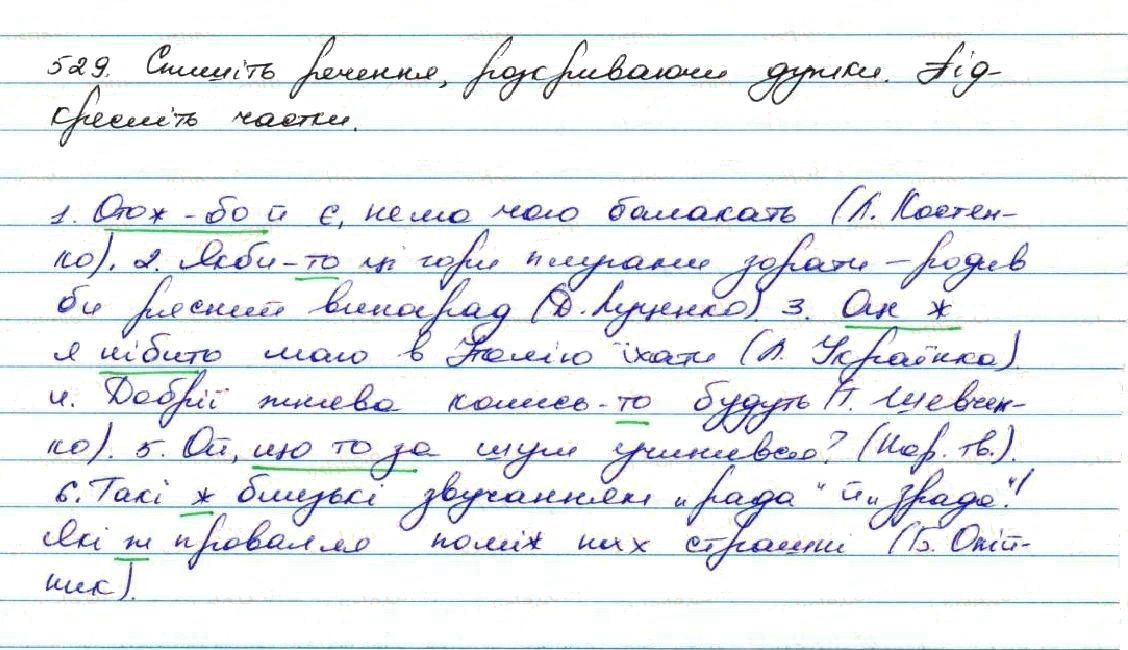 529. Спишіть речення, розкриваючи дужки. Під-
кресліть частки.
1. Отож-бо й є, нема чого балакать (Л. Костен-
ко). 2. Якби-то ці гори плугами зорати – родив
би рясний виноград (Д. Луценко) 3. Он ж
я нібито маю в Італію їхати (Л. Українка).
4. Добрії жнева колись-то будуть (Т. Шевчен-
ко). 5. Ой, що то за шум учинився? (Нар. тв.).
6. Такі ж близькі звучанням „рада" й „зрада"!
Які ж провалля поміж них страшні (Б. Олій-
ник).